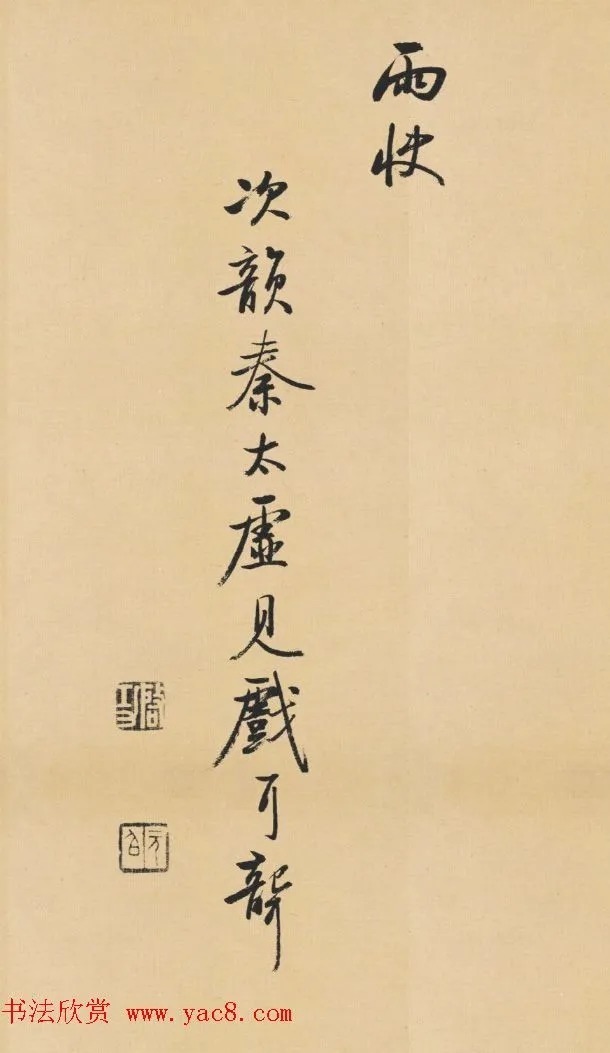 雨快
次韻秦太虛見戲耳聾
啓功
书法欣赏 www.yac8.com